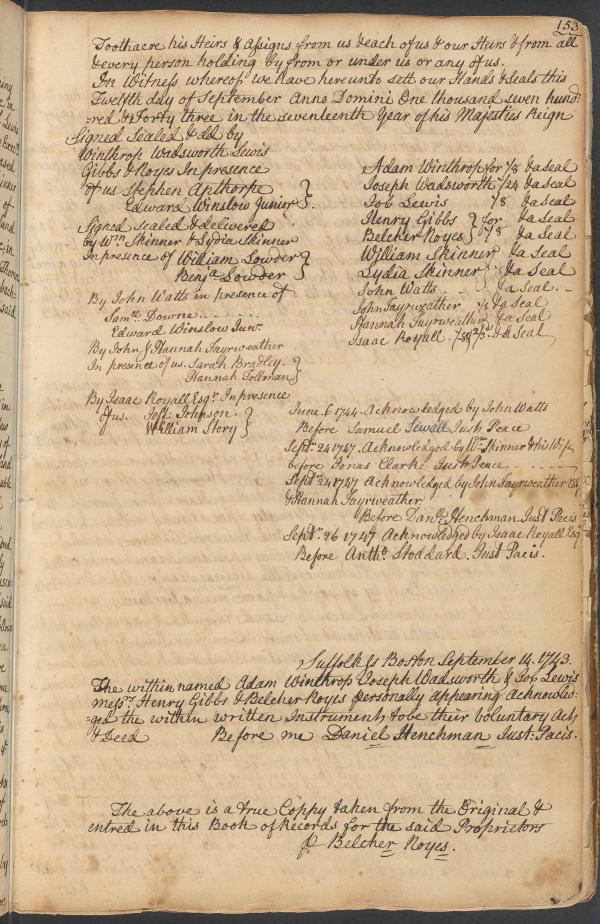 153
Toothacre his Heirs & Assigns from us & each of us & our Heirs & from all
& every person holding by from or under us or any of us.
In Witness whereof we have hereunto sett our Hands & Seals this
Twelfth day of September Anno Domini One thousand seven hund=
=red & Forty three in the seventeenth Year of his Majesties Reign
Signed Sealed & dd by
Winthrop Wadsworth Lewis
Gibbs & Noyes In presence
of us Stephen Apthorpe
Edward Winslow Junior
Signed Sealed & delivered
by Wm Skinner & Lydia Skinner
In presence of William Lowder
Benja Lowder
By John Watts in presence of
Samll Downe
Edward Winslow Junr
By John & Hannah Fayrweather
In presence of us. Sarah Bradley.
Hannah Tollman
By Isaac Royall Esqr In presence
of us. Jeff: Johnson.
William Story
Adam Winthrop for 1/8 & a Seal
Joseph Wadsworth 1/24 & a Seal
Job Lewis 1/8 & a Seal
Henry Gibbs } for & a Seal
Belcher Noyes } 1/8 & a Seal
William Skinner & a Seal
Lydia Skinner & a Seal
John Watts & a Seal
John Fayrweather & a Seal
Hannah Fayrweather & a Seal
Isaac Royall & a Seal
June. 6. 1744. Acknowledged by John Watts
Before Samuel Sewall Just. Peace
Septr 24 1747. Acknowledged by Wm Skinner & his Wife,
before Jonas Clarke Just: Peace
Septr 24 1747 Acknowledged by John Fayrweather Esqr
& Hannah Fayrweather
Before Danll Henchman. Just Pacis
Septr 26 1747 Acknowledged by Isaac Royall Esqr
Before Antho Stoddard. Just Pacis.
Suffolk ss Boston September 14. 1743.
The within named Adam Winthrop Joseph Wadsworth & Job Lewis
messrs Henry Gibbs & Belcher Noyes personally appearing Acknowled=
=ged the within written Instrument to be their Voluntary Act
& Deed Before me Daniel Henchman Just: Pacis.
The above is a true Coppy taken from the Original &
entred in this Book of Records for the said Proprietors
Belcher Noyes.